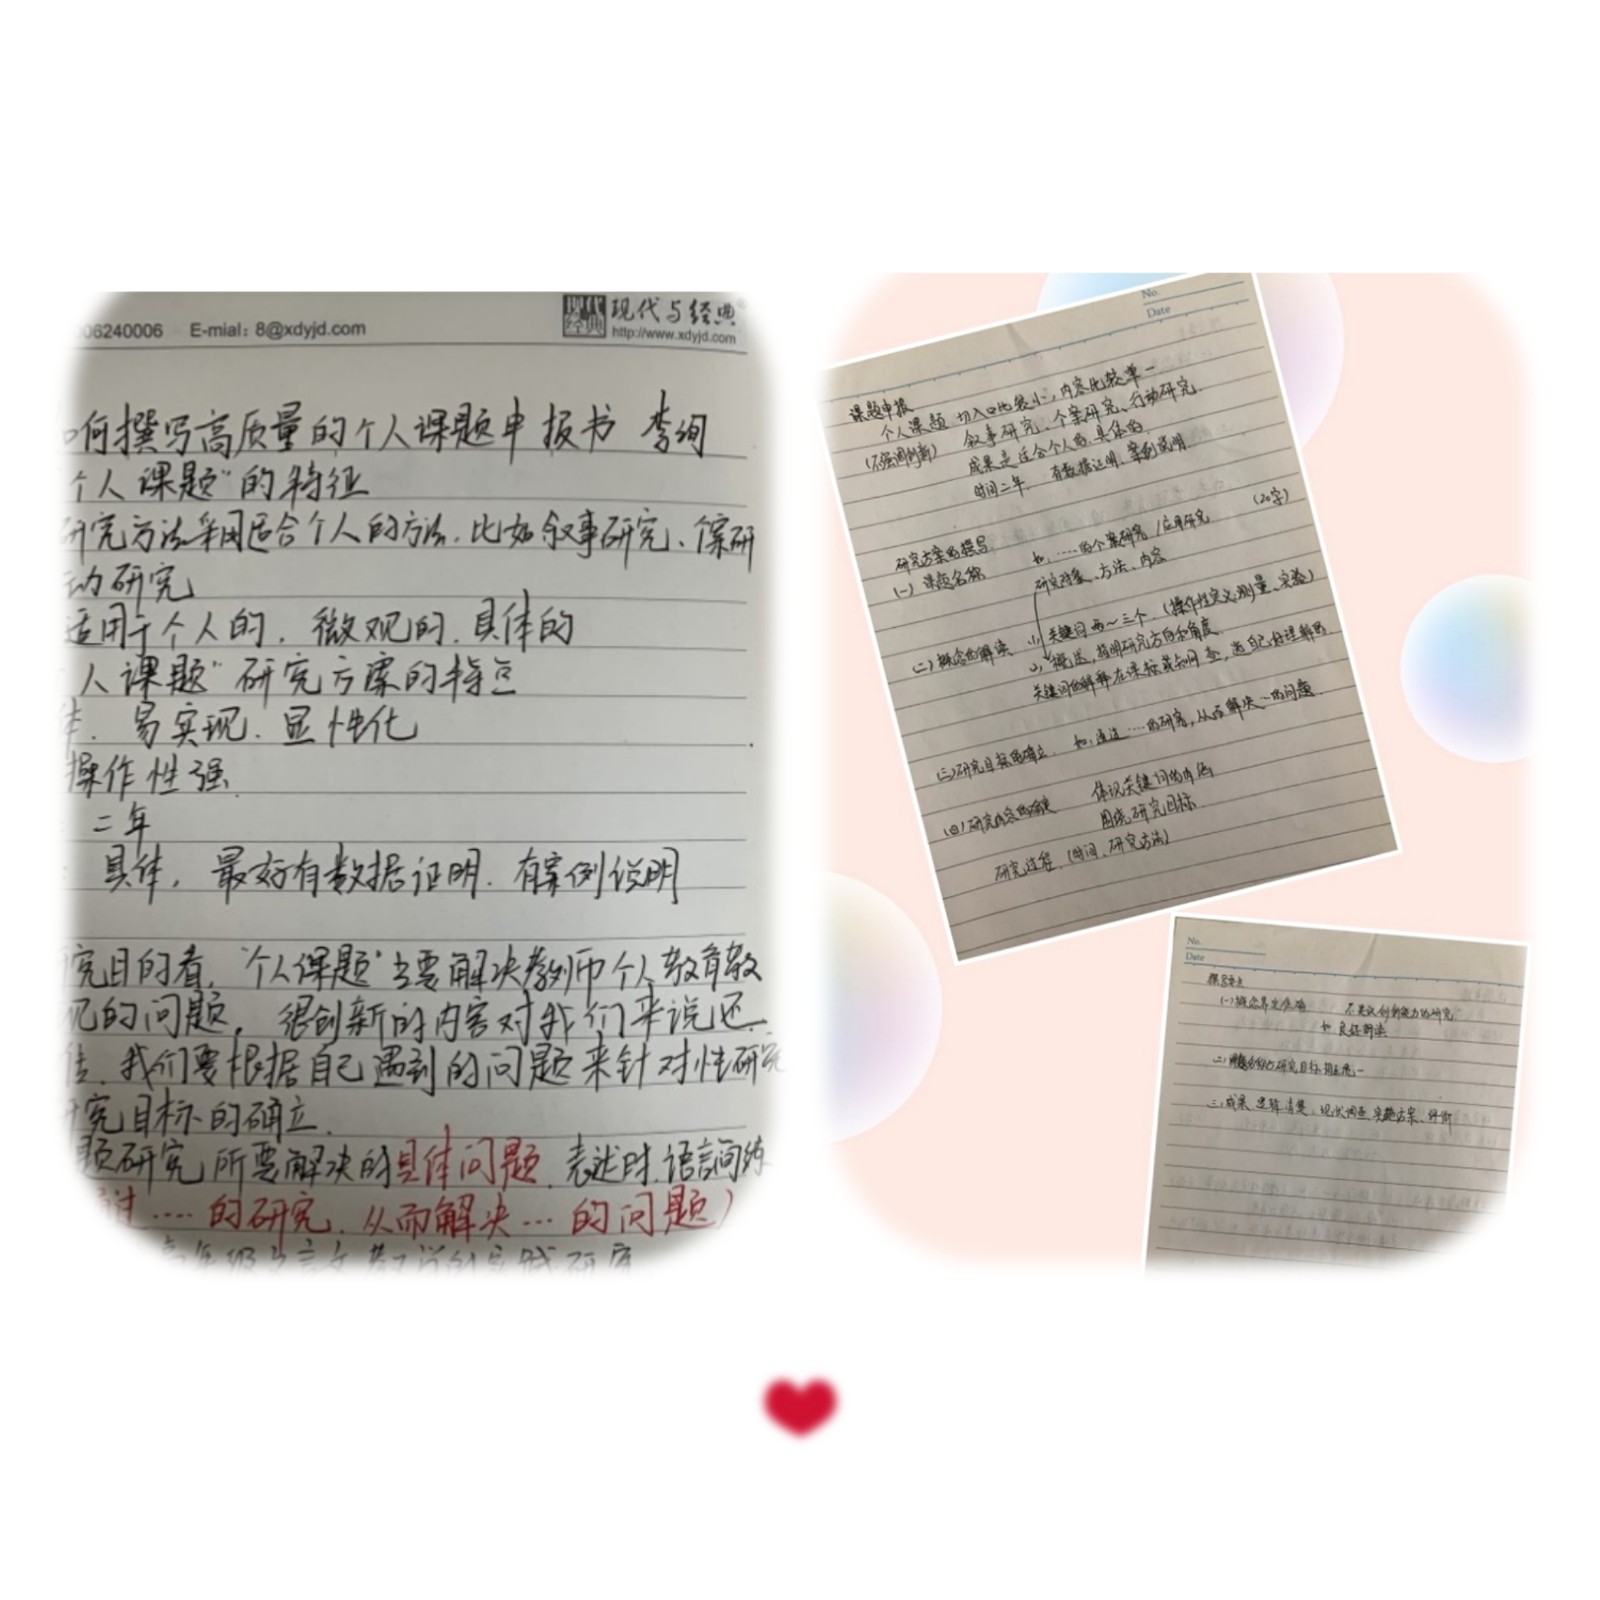 006240006 E-mial: 8@xdyjd.com
现代经典 现代与经典
http://www.xdyjd.com
何撰写高质量的个人课题申报书 李绚
个人课题"的特征
研究方法采用适合个人的方法,比如叙事研究、个案研
动研究
适用于个人的,微观的,具体的
人课题"研究方案的特点
易实现,显性化
操作性强
二年
具体,最好有数据证明,有案例说明
究目的看,"个人课题"主要解决教师个人教育教
现的问题,很创新的内容对我们来说还
我们要根据自己遇到的问题来针对性研究
研究目标的确立
题研究所要解决的具体问题,表述时,语言简练
过....的研究,从而解决...的问题)
No.
Date
课题申报
个人课题 切入口比较小,内容比较单一
(不强调创新) 叙事研究、个案研究、行动研究
成果是适合个人的,具体的
时间二年 有数据证明、案例说明
研究方案的撰写
(一)课题名称 如:....的个案研究/应用研究 (20字)
研究对象、方法、内容
(二)概念的解读 (1)关键词两~三个(操作性定义:测量、实验)
(2)概述,指明研究方向和角度
关键词的解释在课标或知网查,选自己好理解的
(三)研究目标的确立 如:通过....的研究,从而解决...的问题
(四)研究内容的 体现关键词的内涵
围绕研究目标
研究过程(时间、研究方法)
No.
Date
撰写要点
(一)概念界定准确 不建议创新能力的研究
如 良征解读
(二) 研究目标 统一
三、成果 思路清楚,现状调查,实施方案、评价